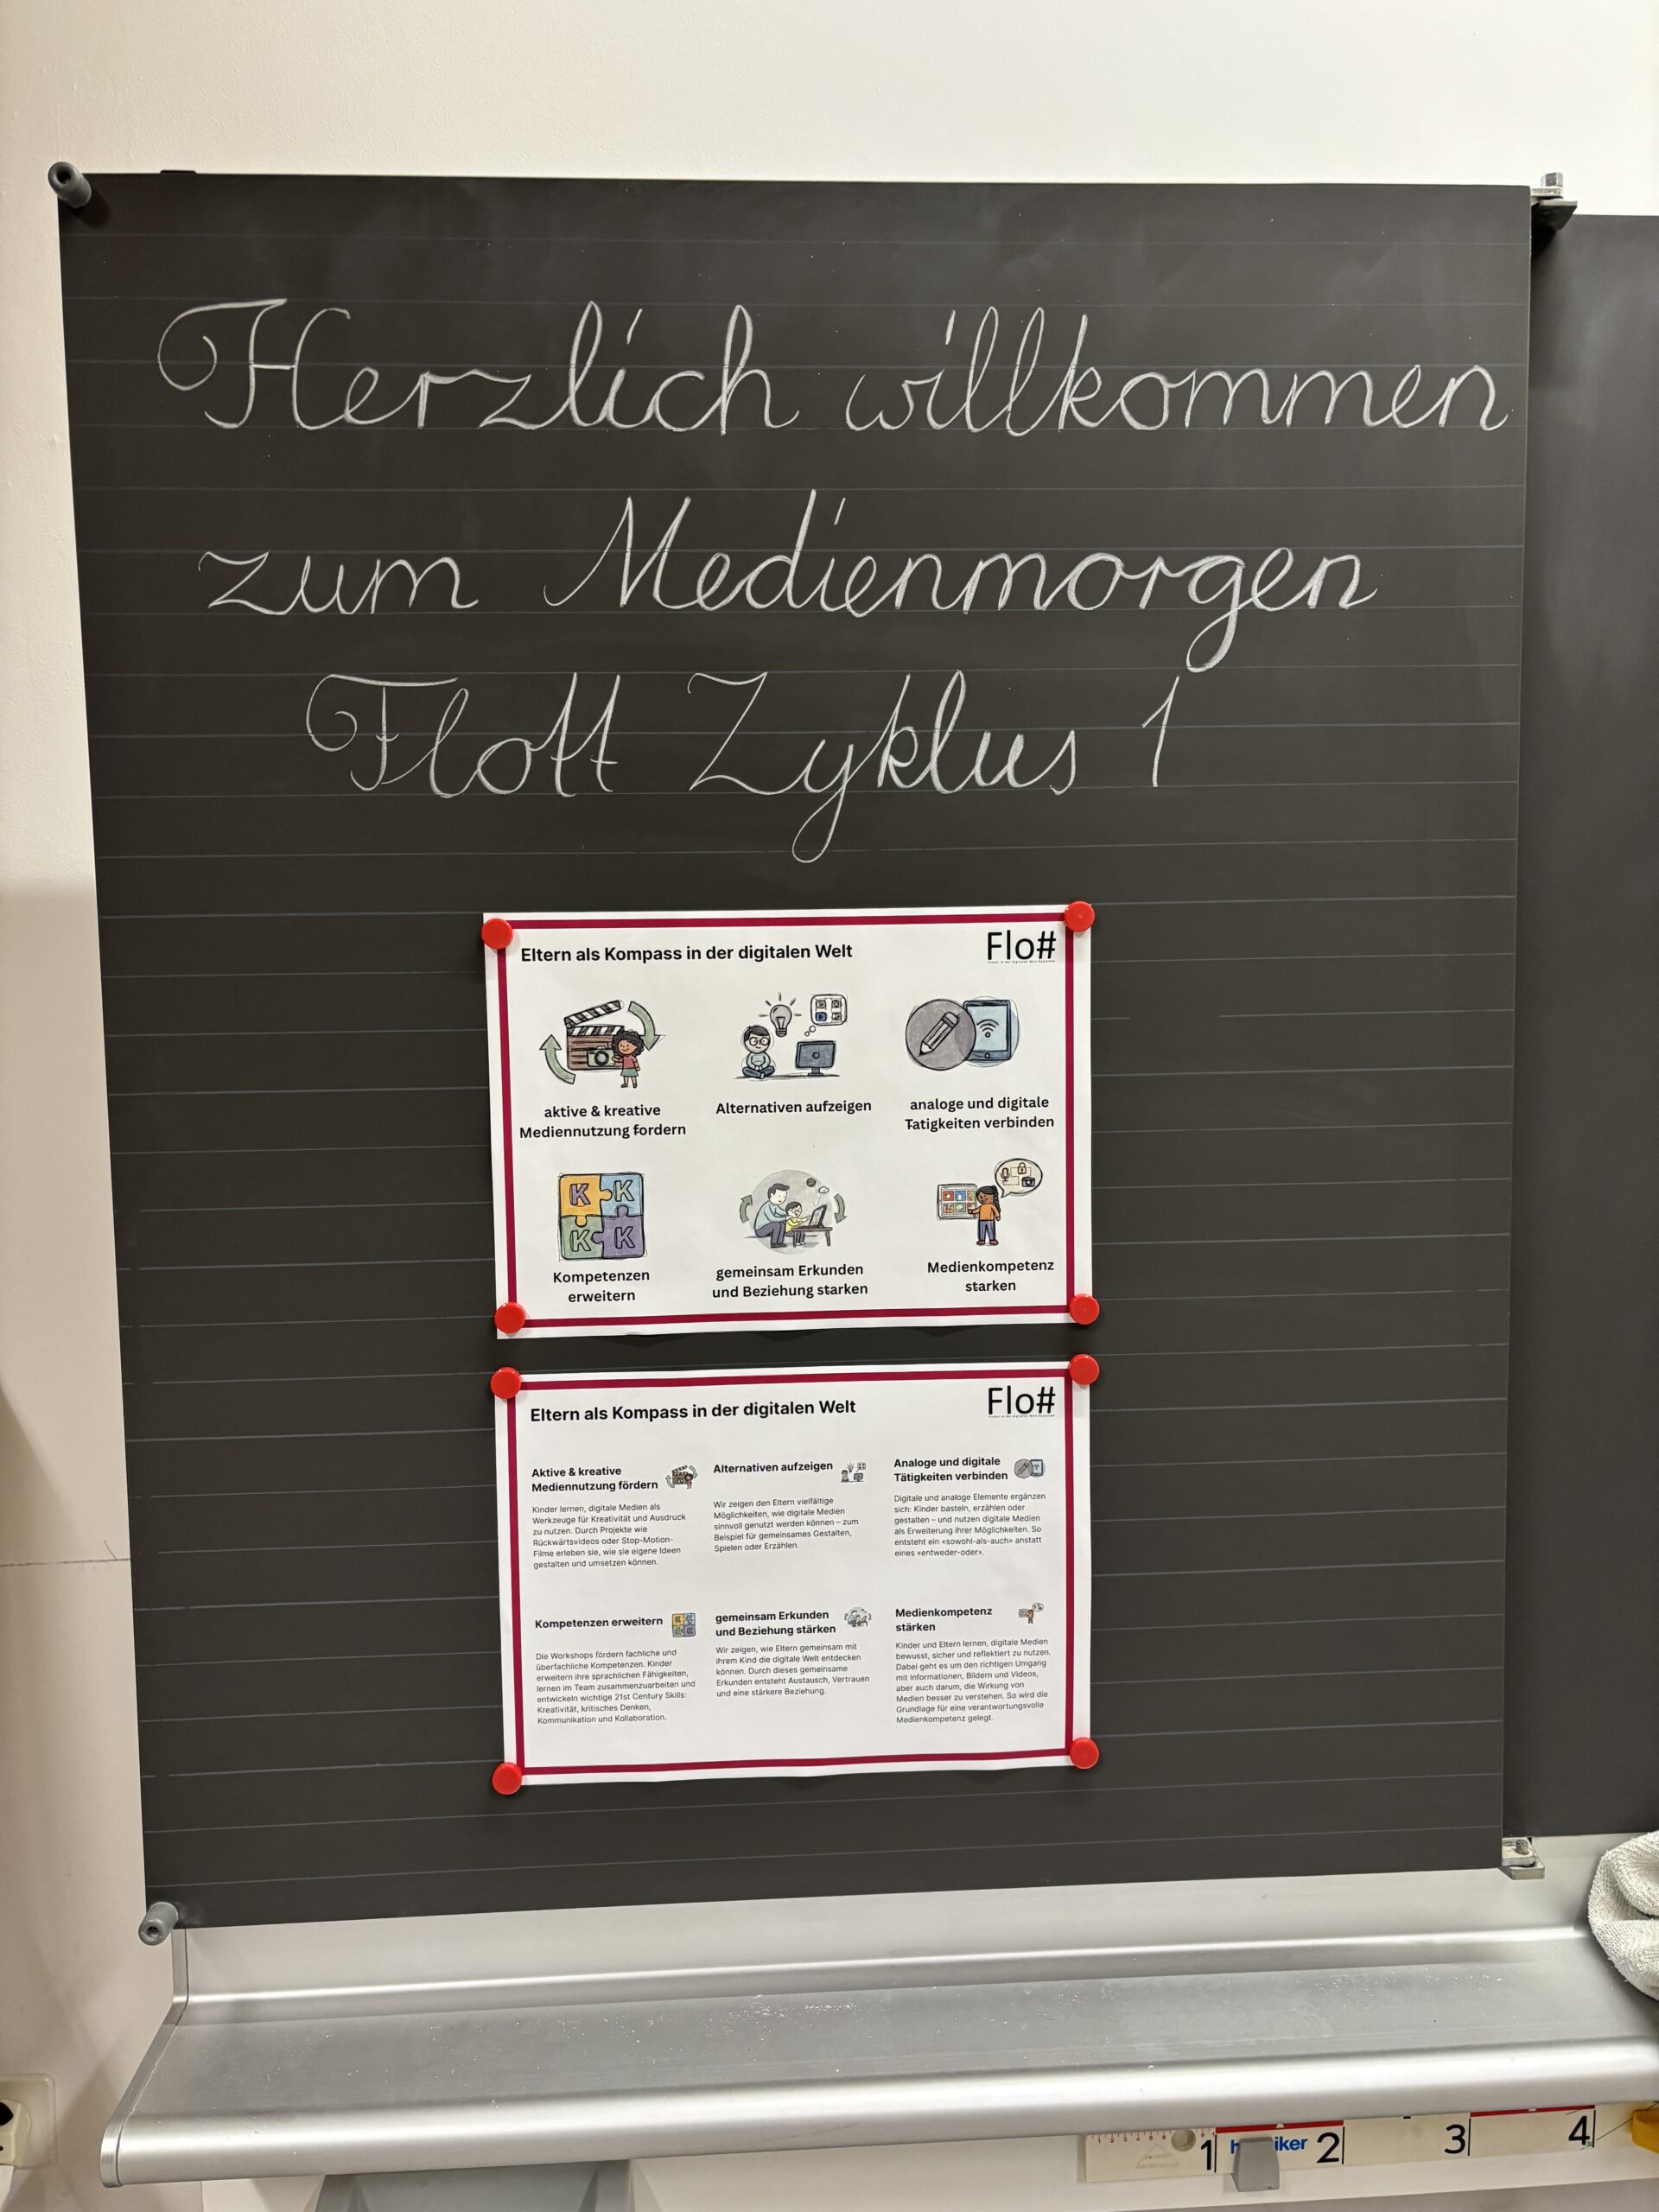 Herzlich willkommen
zum Medienmorgen
Flott Zyklus 1
Eltern als Kompass in der digitalen Welt
Flo#
aktive & kreative
Mediennutzung fordern
Alternativen aufzeigen
analoge und digitale
Tatigkeiten verbinden
K K
K K
Kompetenzen
erweitern
gemeinsam Erkunden
und Beziehung starken
Medienkompetenz
starken
Eltern als Kompass in der digitalen Welt
Flo#
Aktive & kreative
Mediennutzung fördern
Kinder lernen, digitale Medien als
Werkzeuge für Kreativität und Ausdruck
zu nutzen. Durch Projekte wie
Rückwärtsvideos oder Stop-Motion-
Filme erleben sie, wie sie eigene Ideen
gestalten und umsetzen können.
Alternativen aufzeigen
Wir zeigen den Eltern vielfältige
Möglichkeiten, wie digitale Medien
sinnvoll genutzt werden können – zum
Beispiel für gemeinsames Gestalten,
Spielen oder Erzählen.
Analoge und digitale
Tätigkeiten verbinden
Digitale und analoge Elemente ergänzen
sich: Kinder basteln, erzählen oder
gestalten – und nutzen digitale Medien
als Erweiterung ihrer Möglichkeiten. So
entsteht ein «sowohl-als-auch» anstatt
eines «entweder-oder».
Kompetenzen erweitern
Die Workshops fördern fachliche und
überfachliche Kompetenzen. Kinder
erweitern ihre sprachlichen Fähigkeiten,
lernen im Team zusammenzuarbeiten und
entwickeln wichtige 21st Century Skills:
Kreativität, kritisches Denken,
Kommunikation und Kollaboration.
gemeinsam Erkunden
und Beziehung stärken
Wir zeigen, wie Eltern gemeinsam mit
ihrem Kind die digitale Welt entdecken
können. Durch dieses gemeinsame
Erkunden entsteht Austausch, Vertrauen
und eine stärkere Beziehung.
Medienkompetenz
stärken
Kinder und Eltern lernen, digitale Medien
bewusst, sicher und reflektiert zu nutzen.
Dabei geht es um den richtigen Umgang
mit Informationen, Bildern und Videos,
aber auch darum, die Wirkung von
Medien besser zu verstehen. So wird die
Grundlage für eine verantwortungsvolle
Medienkompetenz gelegt.
1 2 3 4